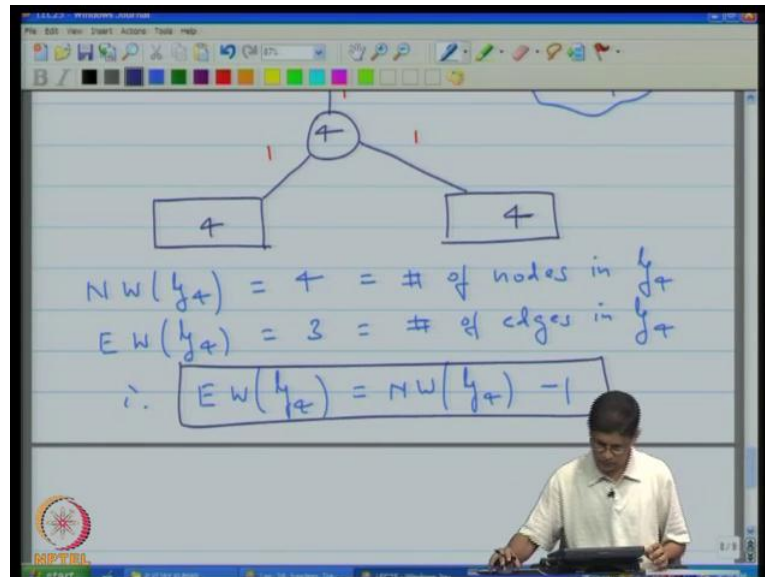 LEC25 - Windows Journal
File Edit View Insert Actions Tools Help
87%
B I
1
4
1 1
4 4
NW(𝒢4) = 4 = # of nodes in 𝒢4
EW(𝒢4) = 3 = # of edges in 𝒢4
∴ EW(𝒢4) = NW(𝒢4) - 1
8/8
NPTEL
start